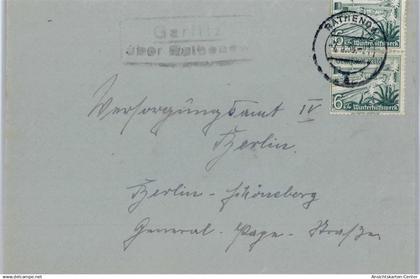 Garlitz
über Rathenow
RATHENOW
a
6 Winterhilfswerk
6 Winterhilfswerk
Versorgungsamt IV
Berlin.
Berlin-Schöneberg
General-Pape-Straße
Ansichtskarten-Center